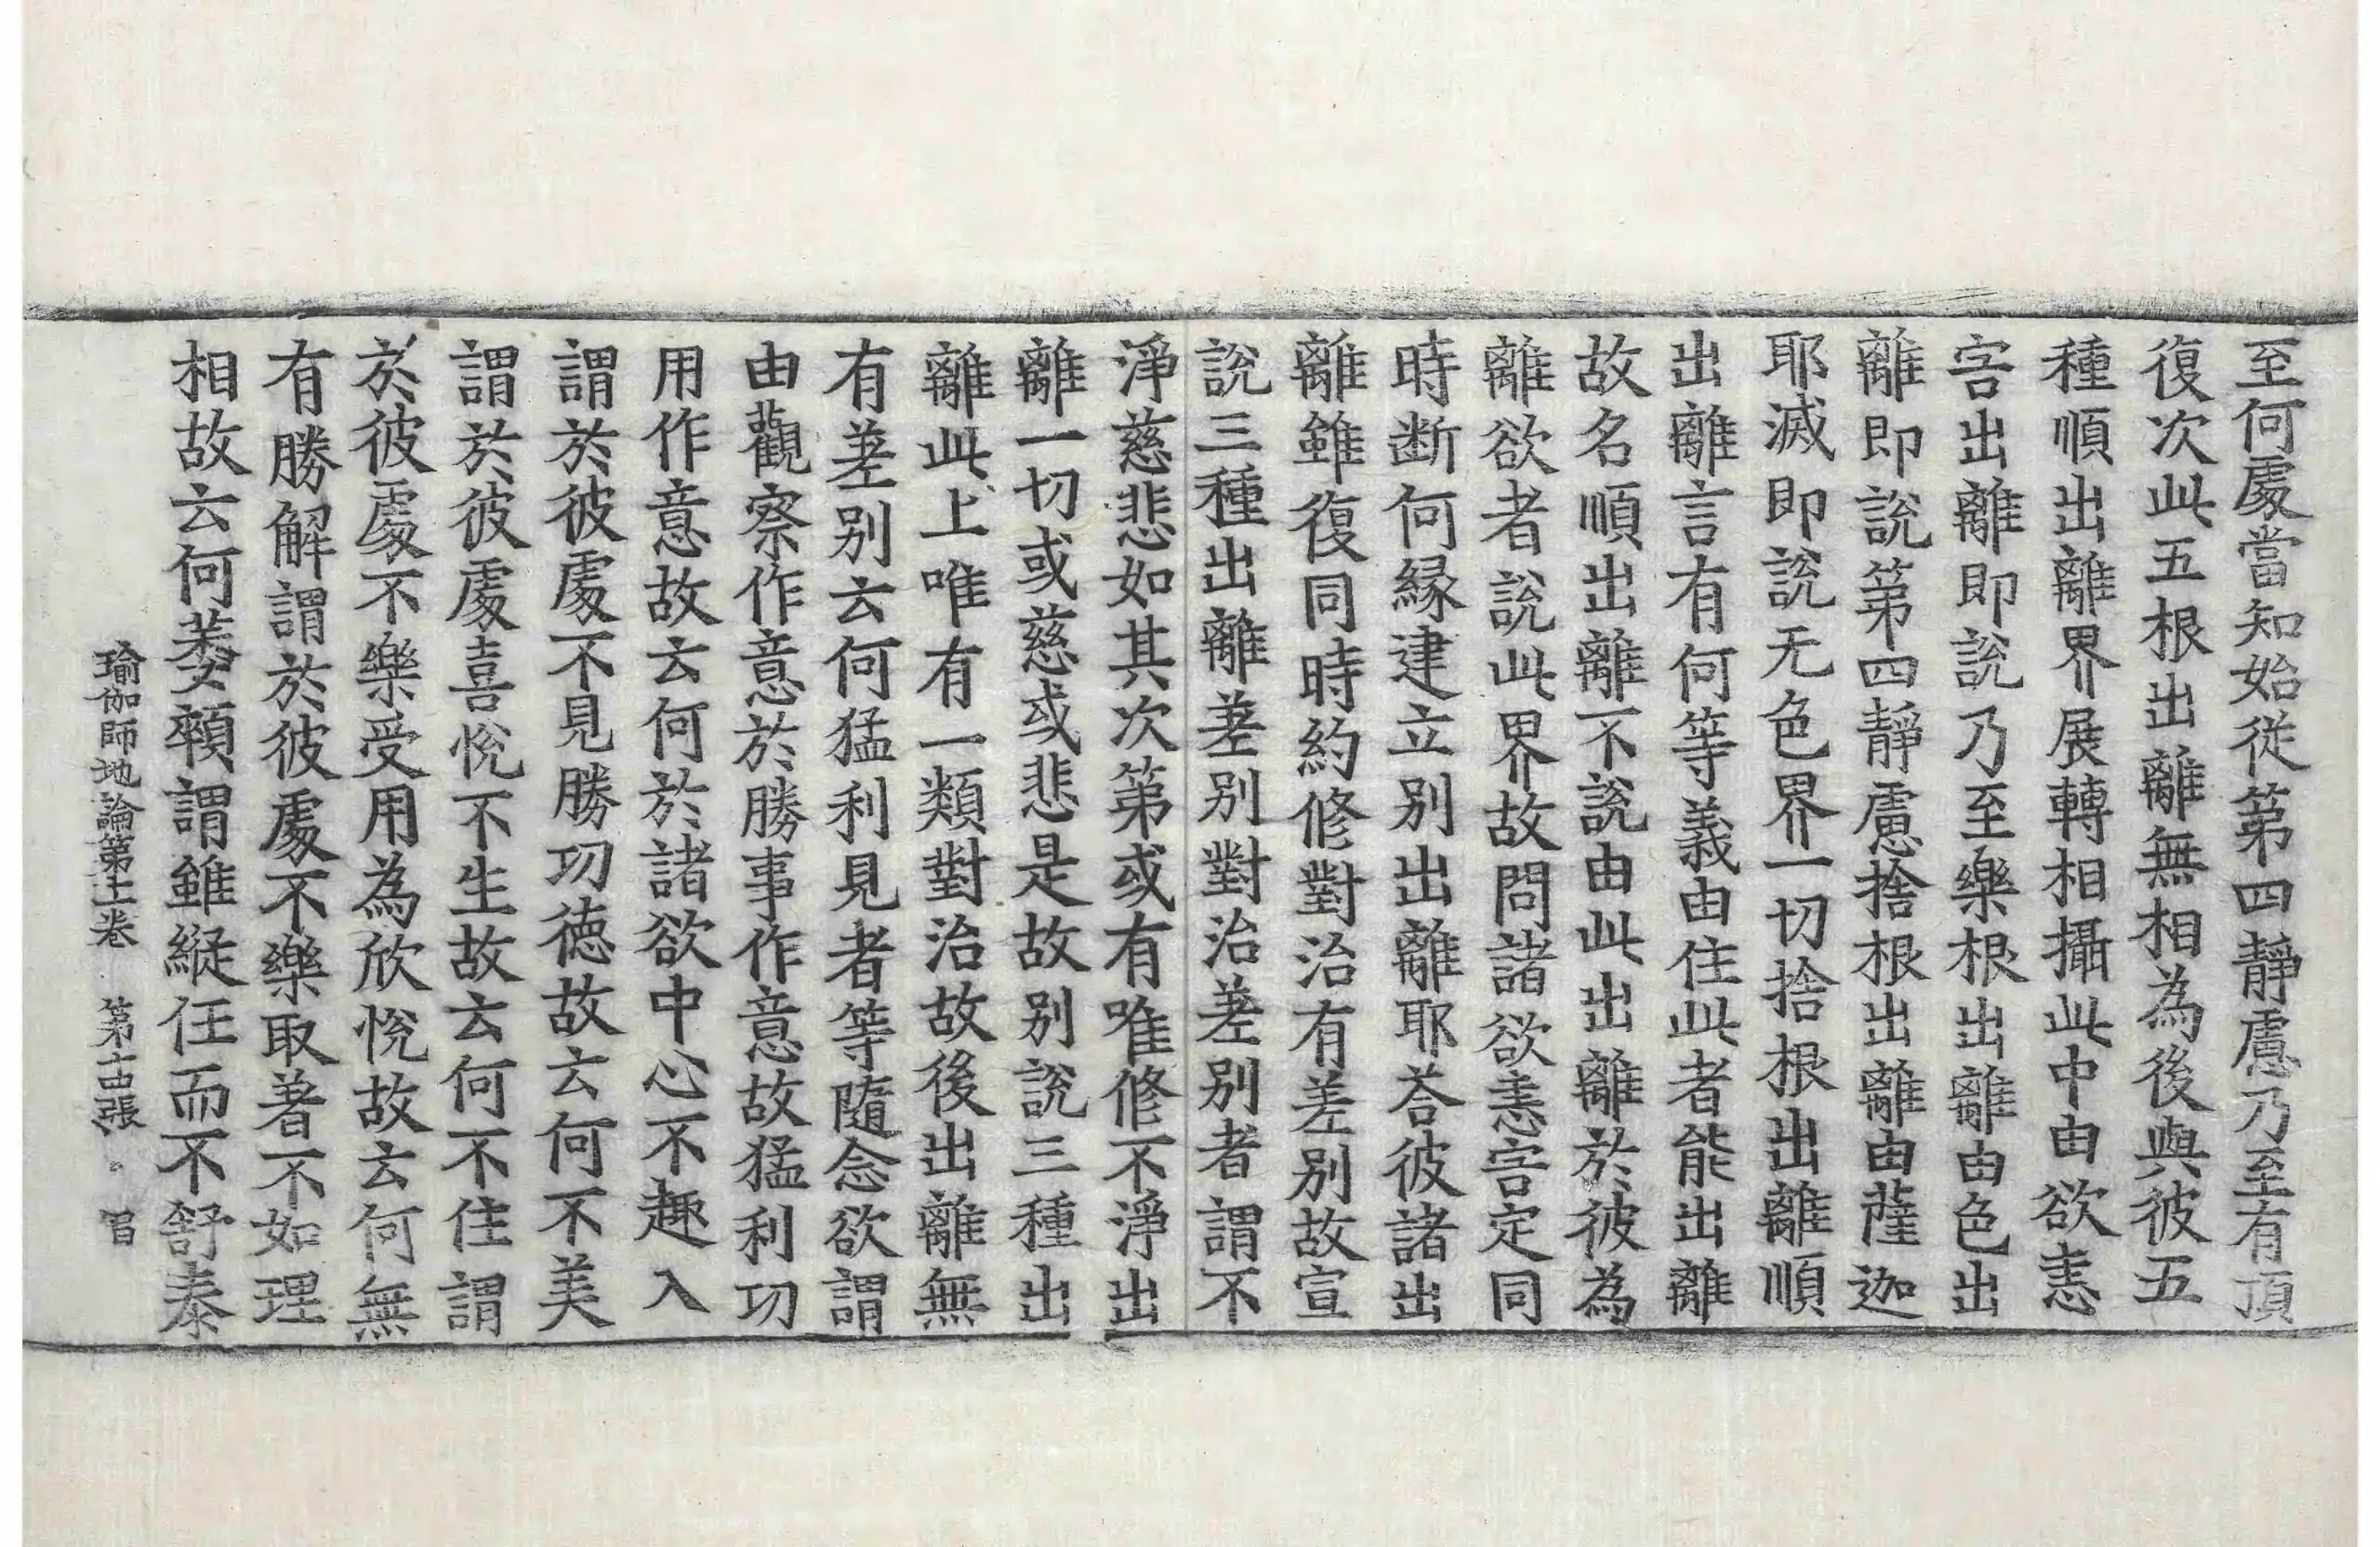 至何處當知始從第四靜慮乃至有頂
復次此五根出離無相為後與彼五
種順出離界展轉相攝此中由欲恚
害出離即說乃至樂根出離由色出
離即說第四靜慮捨根出離由薩迦
耶滅即說无色界一切捨根出離順
出離言有何等義由住此者能出離
故名順出離不說由此出離於彼為
離欲者說此界故問諸欲恚害定同
時断何緣建立別出離耶荅彼諸出
離雖復同時約修對治有差別故宣
說三種出離差別對治差別者謂不
淨慈悲如其次第或有唯修不淨出
離一切或慈或悲是故別說三種出
離此上唯有一類對治故後出離無
有差別云何猛利見者等隨念欲謂
由觀察作意於勝事作意故猛利功
用作意故云何於諸欲中心不趣入
謂於彼處不見勝功德故云何不美
謂於彼處喜悅不生故云何不住謂
於彼處不樂受用為欣悅故云何無
有勝解謂於彼處不樂取著不如理
相故云何萎顇謂雖縱任而不舒泰
瑜伽師地論第十一卷 第十四張 。 㫺